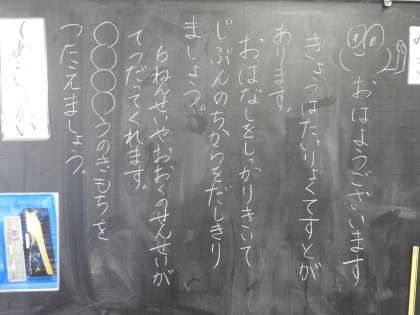 おはようございます
きょうはたいりょくてすとが
あります。
おはなしをしっかりきいて
じぶんのちからをだしきり
ましょう。
６ねんせいやおおくのせんせいが
てつだってくれます。
○○○○うのきもちを
つたえましょう。